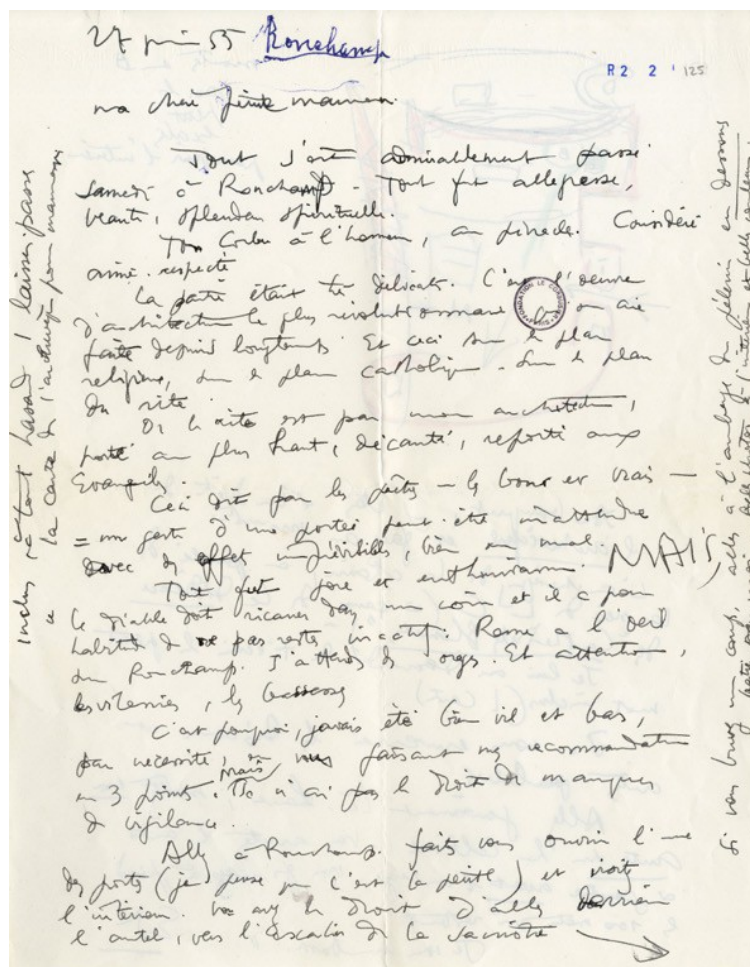 27 juin 55 Ronchamp
R2 2 125
ma chère petite maman.
Tout s'est admirablement passé
Samedi à Ronchamp - Tout fut allégresse,
beauté, splendeur spirituelle.
Ton Corbu à l'honneur, au pinacle. Considéré
aimé. respecté
La partie était très délicate. C'est l'oeuvre
d'architecture la plus révolutionnaire qu'on aie
faite depuis longtemps. Et ceci sur le plan
religieux, sur le plan catholique. Sur le plan
du rite.
Or le rite est par mon architecture,
porté au plus haut, décanté, reporté aux
Evangiles.
Ceci dit par les prêtres - les bons et vrais -
= un geste d'une portée peut-être inattendue
avec des effets, bien ou mal. MAIS,
Tout fut joie et enthousiasme.
le diable doit ricaner dans un coin et il a pour
habitude de ne pas rester inactif. Rome a l'oeil
sur Ronchamp. J'attends des orages. Et attention,
les vilenies, les bassesses
C'est pourquoi, j'avais été bien vil et bas,
par nécessité, en vous faisant mes recommandations
en 3 points. Mais je n'ai pas le droit de manquer
de vigilance.
Allez à Ronchamp. faites vous ouvrir l'une
des portes (je pense que c'est la petite) et visitez
l'intérieur. Vous avez le droit d'aller derrière
l'autel, vers l'escalier de la sacristie
FONDATION LE CORBUSIER
inclus à tout hasard 1 laissez passer
la carte de l'archevêque pour maman
Si vous buvez un coup, allez à l'auberge du pèlerin en dessous
belles photos de l'intérieur et